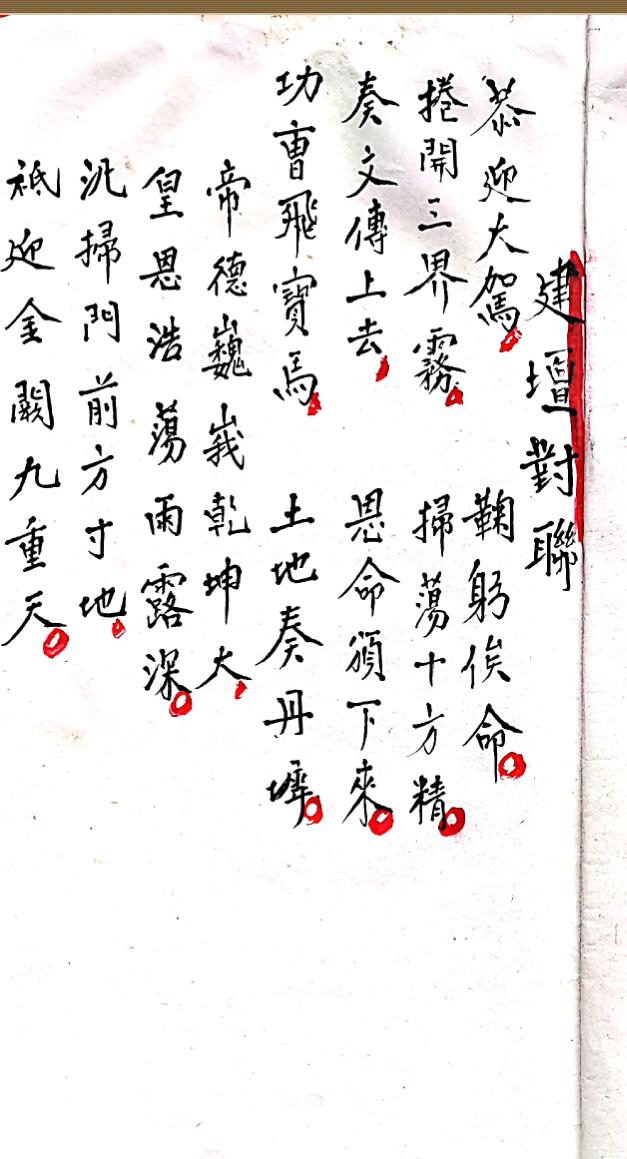 建壇對聯
恭迎大駕 鞠躬俟命
捲開三界霧 掃蕩十方精
奏文傳上去 恩命頒下來
功曹飛寶馬 土地奏丹墀
帝德巍峩乾坤大
皇恩浩蕩雨露深
汎掃門前方寸地
祗迎金闕九重天